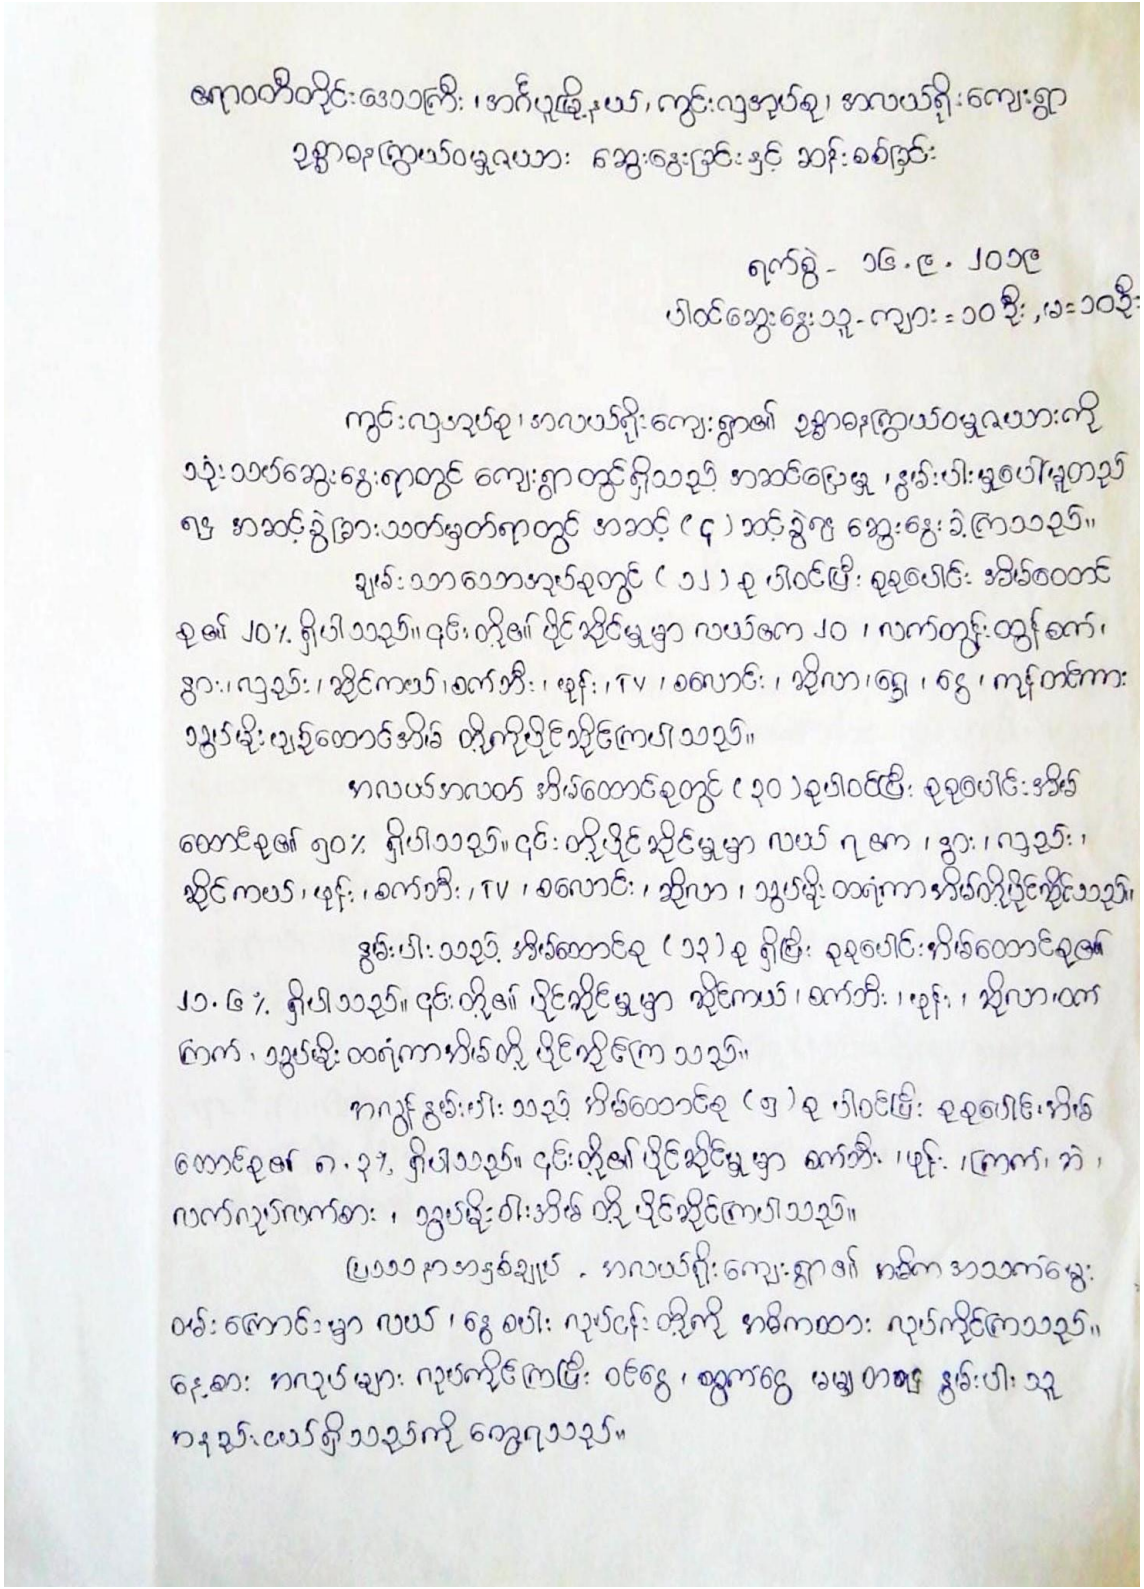 ဧရာဝတီတိုင်းဒေသကြီး၊ အင်္ဂပူမြို့နယ်၊ ကွင်းလှအုပ်စု၊ အလယ်ရိုးကျေးရွာ
ဥစ္စာဓနကြွယ်ဝမှုဇယား ဆွေးနွေးခြင်းနှင့် ဆန်းစစ်ခြင်း
ရက်စွဲ - ၁၆.၉.၂၀၁၉
ပါဝင်ဆွေးနွေးသူ - ကျား = ၁၀ ဦး, မ = ၁၀ဦး
ကွင်းလှအုပ်စု၊ အလယ်ရိုးကျေးရွာ၏ ဥစ္စာဓနကြွယ်ဝမှုဇယားကို
သုံးသပ်ဆွေးနွေးရာတွင် ကျေးရွာတွင်ရှိသည့် အဆင်ပြေမှု၊ နွမ်းပါးမှုပေါ်မူတည်
၍ အဆင့်ခွဲခြားသတ်မှတ်ရာတွင် အဆင့် (၄) ဆင့်ခွဲ၍ ဆွေးနွေးခဲ့ကြသည်။
ချမ်းသာသောအုပ်စုတွင် (၁၂) စု ပါဝင်ပြီး စုစုပေါင်း အိမ်ထောင်
စု၏ ၂၀% ရှိပါသည်။ ၎င်းတို့၏ ပိုင်ဆိုင်မှုမှာ လယ်ဧက ၂၀ ၊ လက်တွန်းထွန်စက်၊
နွား၊ လှည်း၊ ဆိုင်ကယ်၊ စက်ဘီး၊ ဖုန်း၊ TV ၊ စလောင်း၊ ဆိုလာ၊ ရွှေ၊ ငွေ၊ ကုန်တင်ကား
သွပ်မိုးပျဉ်ထောင်အိမ် တို့ကိုပိုင်ဆိုင်ကြပါသည်။
အလယ်အလတ် အိမ်ထောင်စုတွင် (၃၀) စုပါဝင်ပြီး စုစုပေါင်းအိမ်
ထောင်စု၏ ၅၀% ရှိပါသည်။ ၎င်းတို့ပိုင်ဆိုင်မှုမှာ လယ် ၇ ဧက ၊ နွား၊ လှည်း၊
ဆိုင်ကယ်၊ ဖုန်း၊ စက်ဘီး၊ TV ၊ စလောင်း၊ ဆိုလာ၊ သွပ်မိုးထရံကာအိမ်တို့ပိုင်ဆိုင်သည်။
နွမ်းပါးသည့် အိမ်ထောင်စု (၁၃) စု ရှိပြီး စုစုပေါင်းအိမ်ထောင်စု၏
၂၁.၆% ရှိပါသည်။ ၎င်းတို့၏ ပိုင်ဆိုင်မှုမှာ ဆိုင်ကယ်၊ စက်ဘီး၊ ဖုန်း၊ ဆိုလာ၊ ဝက်
ကြက်၊ သွပ်မိုးထရံကာအိမ်တို့ ပိုင်ဆိုင်ကြသည်။
အလွန်နွမ်းပါးသည့် အိမ်ထောင်စု (၅) စု ပါဝင်ပြီး စုစုပေါင်းအိမ်
ထောင်စု၏ ၈.၃% ရှိပါသည်။ ၎င်းတို့၏ ပိုင်ဆိုင်မှုမှာ စက်ဘီး၊ ဖုန်း၊ ကြက်၊ ဘဲ၊
လက်လုပ်လက်စား၊ သွပ်မိုးဝါးအိမ် တို့ ပိုင်ဆိုင်ကြပါသည်။
ပြဿနာအနှစ်ချုပ် - အလယ်ရိုးကျေးရွာ၏ အဓိကအသက်မွေး
ဝမ်းကြောင်းမှာ လယ်၊ နွေစပါး လုပ်ငန်းတို့ကို အဓိကထား လုပ်ကိုင်ကြသည်။
နေ့စား အလုပ်များ လုပ်ကိုင်ကြပြီး ဝင်ငွေ၊ ထွက်ငွေ မမျှတ၍ နွမ်းပါးသူ
အနည်းငယ်ရှိသည်ကို တွေ့ရသည်။